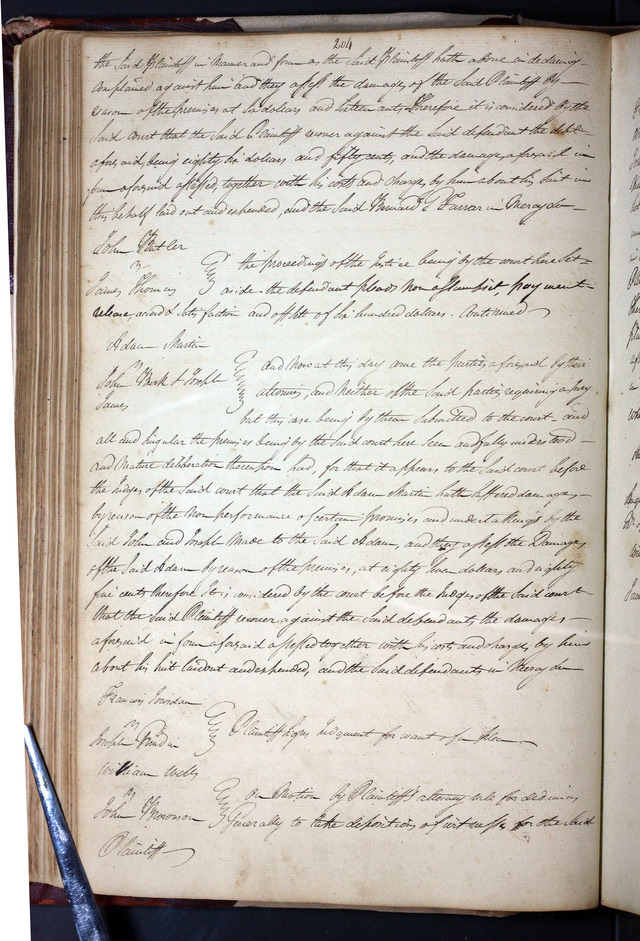 204
the Said Plaintiff in Manner and form as the Said Plaintiff hath above in declaring
complained against him and they assess the damages of the Said Plaintiff by
reason of the premises at Six dollars and Sixteen cents Therefore it is considered by the
Said court that the Said Plaintiff recover against the Said defendant the debt
aforesaid, being eighty Six dollars and fifty cents, and the damages aforesaid in
form aforesaid assessed, together with his costs and charges, by him about his Suit in
this behalf laid out and expended, and the Said Bernard G Farrar in Mercy &c
John Butler
vs
James Thomas
the proceedings of the Justice being by the court here Set
aside. the defendant pleads non assumpsit, payment
release, accord & Satisfaction and off Sett of Six hundred dollars. Continued
Adam Martin
vs
John Burk & Joseph
James
and now at this day come the parties aforesaid by their
attornies, and Neither of the Said parties requiring a Jury
but this case being by them Submitted to the court and
all and Singular the premises being by the Said court here Seen and fully understood
and Mature deliberation thereupon had, for that it appears to the Said court before
the Judges of the Said court that the Said Adam Martin hath Suffered damages,
by reason of the Non performance of certain promises and undertakings by the
Said John and Joseph Made to the Said Adam, and they assess the Damages
of the Said Adam by reason of the premises, at eighty Seven dollars and eighty
five cents therefore It is considered by the court before the Judges of the Said court
that the Said Plaintiff recover against the Said defendants the damages
aforesaid in form aforesaid assessed together with his costs and charges by him
about his Suit laid out and expended, and the Said defendants in Mercy &c
Francis Jourdan
vs
Joseph
Plaintiff Signs Judgment for want of a plea
William Wells
vs
John
On Motion by Plaintiff's attorney rule for dedimus
Generally to take depositions of witnesses for the Said
Plaintiff